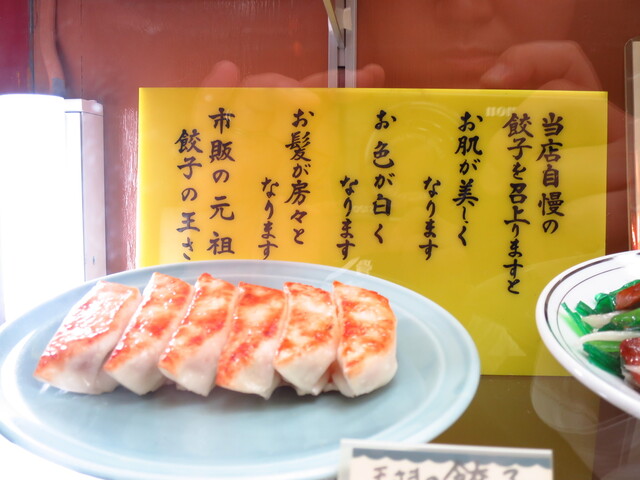 当店自慢の
餃子を召上りますと
お肌が美しく
なります
お色が白く
なります
お髪が房々と
なります
市販の元祖
餃子の王さ